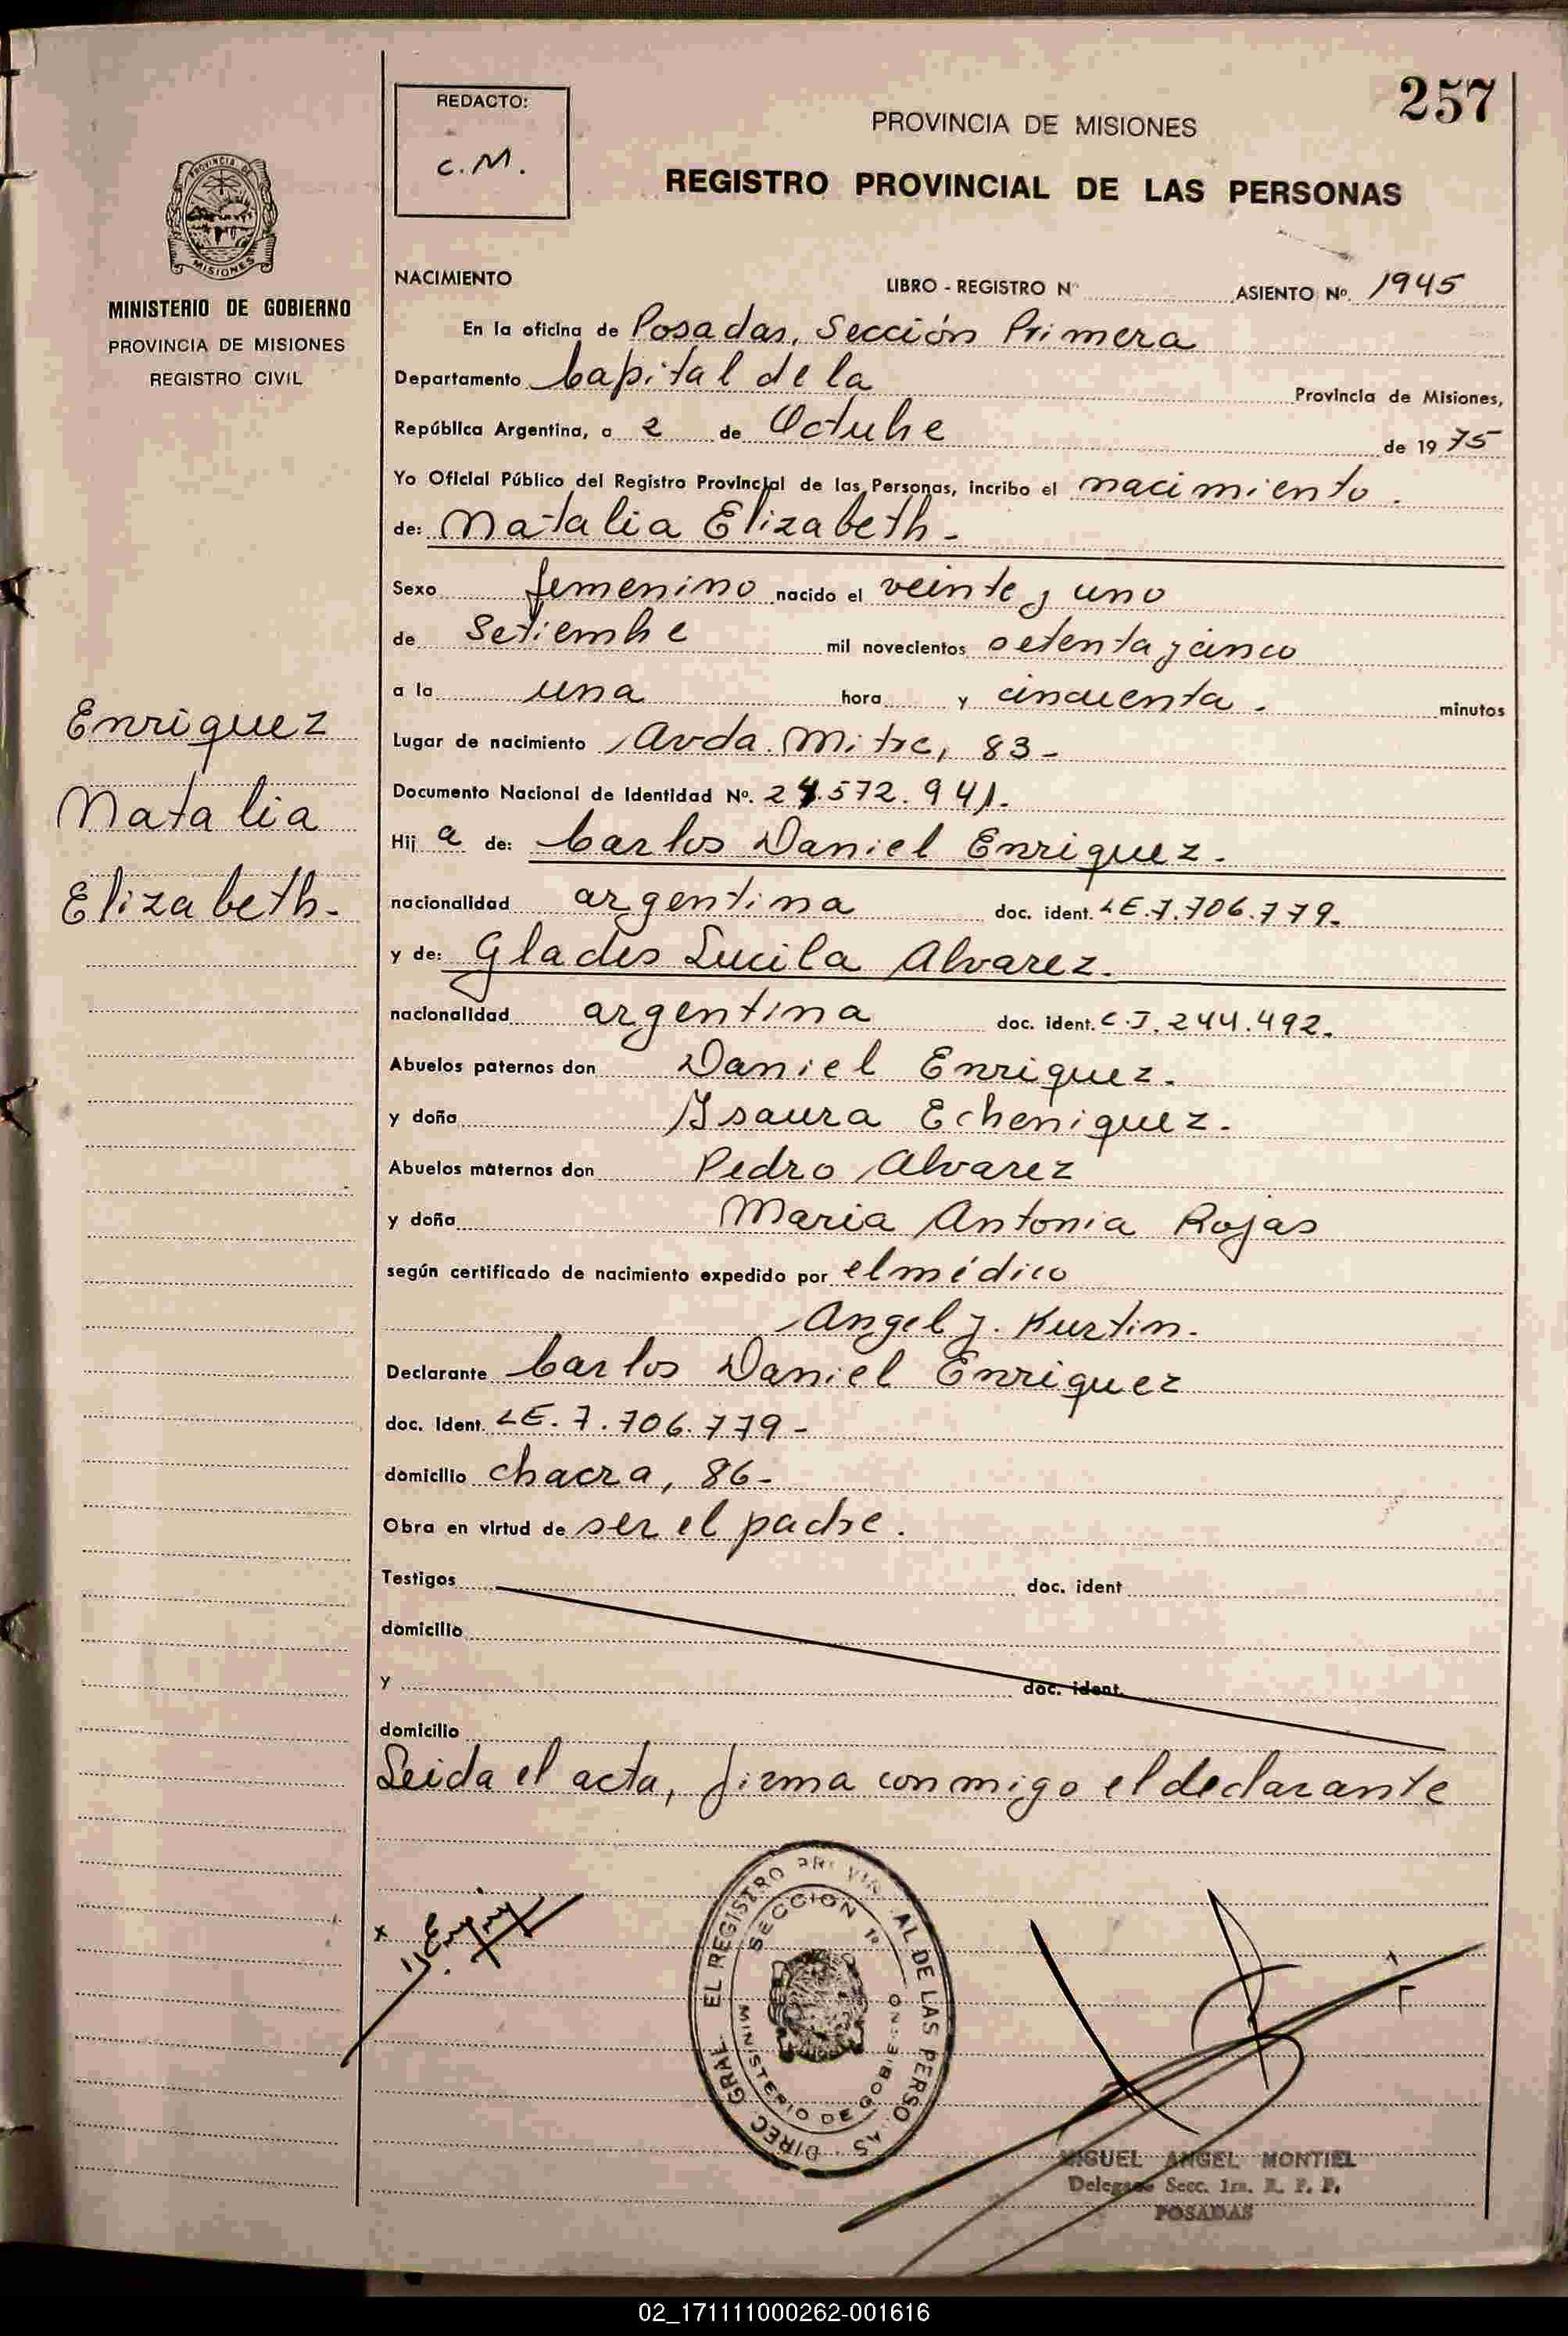 257
REDACTO:
C.M.
PROVINCIA DE MISIONES
REGISTRO PROVINCIAL DE LAS PERSONAS
PROVINCIA DE
MISIONES
MINISTERIO DE GOBIERNO
PROVINCIA DE MISIONES
REGISTRO CIVIL
Enriquez
Natalia
Elizabeth.
NACIMIENTO LIBRO - REGISTRO Nº ASIENTO Nº. 1945
En la oficina de Posadas, Sección Primera
Departamento Capital de la Provincia de Misiones,
República Argentina, a 2 de Octubre de 1975
Yo Oficial Público del Registro Provincial de las Personas, incribo el nacimiento.
de: Natalia Elizabeth-
Sexo femenino nacido el veinte y uno
de Setiembre mil novecientos setenta y cinco
a la una hora y cincuenta. minutos
Lugar de nacimiento Avda. Mitre, 83-
Documento Nacional de Identidad Nº. 24.572.941.
Hij a de: Carlos Daniel Enriquez.
nacionalidad argentina doc. ident. LE.7.706.779-
y de: Glades Lucila Alvarez.
nacionalidad argentina doc. ident. C.I. 244.492.
Abuelos paternos don Daniel Enriquez.
y doña Isaura Echeniquez.
Abuelos maternos don Pedro Alvarez
y doña Maria Antonia Rojas
según certificado de nacimiento expedido por el médico
Angel J. Kurtin.
Declarante Carlos Daniel Enriquez
doc. Ident. LE. 7.706.779-
domicilio chacra, 86-
Obra en virtud de ser el padre.
Testigos doc. ident
domicilio
y doc. ident.
domicilio
Leida el acta, firma conmigo el declarante
DIREC. GRAL. EL REGISTRO PROVINCIAL DE LAS PERSONAS
SECCION 1ª
MINISTERIO DE GOBIERNO
MIGUEL ANGEL MONTIEL
Delegado Secc. 1ra. R. P. P.
POSADAS
02_171111000262-001616